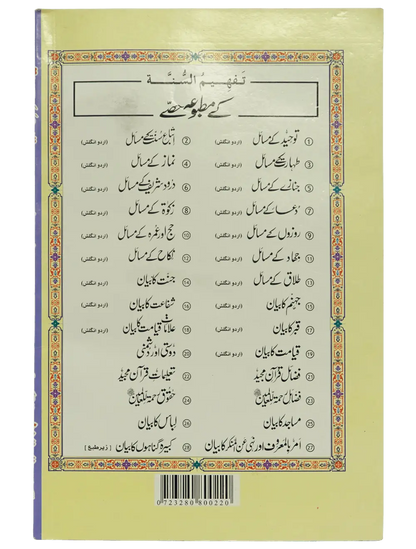 تَفہیمُ السُّنَّۃ
کے مطبوعہ حصّے
1 توحید کے مسائل (اردو انگلش) 2 اتباع سنت کے مسائل (اردو انگلش)
3 طہارت کے مسائل (اردو انگلش) 4 نماز کے مسائل (اردو انگلش)
5 جنازے کے مسائل (اردو انگلش) 6 درود شریف کے مسائل (اردو انگلش)
7 دعا کے مسائل (اردو انگلش) 8 زکوٰۃ کے مسائل (اردو انگلش)
9 روزوں کے مسائل (اردو انگلش) 10 حج اور عمرہ کے مسائل (اردو انگلش)
11 جہاد کے مسائل (اردو انگلش) 12 نکاح کے مسائل (اردو انگلش)
13 طلاق کے مسائل (اردو انگلش) 14 جنت کا بیان (اردو انگلش)
15 جہنم کا بیان (اردو انگلش) 16 شفاعت کا بیان (اردو انگلش)
17 قبر کا بیان (اردو انگلش) 18 علامات قیامت کا بیان (اردو انگلش)
19 قیامت کا بیان (اردو انگلش) 20 دوستی اور دشمنی
21 فضائل قرآن مجید 22 تعلیمات قرآن مجید
23 فضائل رحمۃ للعالمین 24 حقوق رحمۃ للعالمین
25 مساجد کا بیان 26 لباس کا بیان
27 امر بالمعروف اور نہی عن المنکر کا بیان 28 کبیرہ گناہوں کا بیان [زیر طبع]
0723280800220